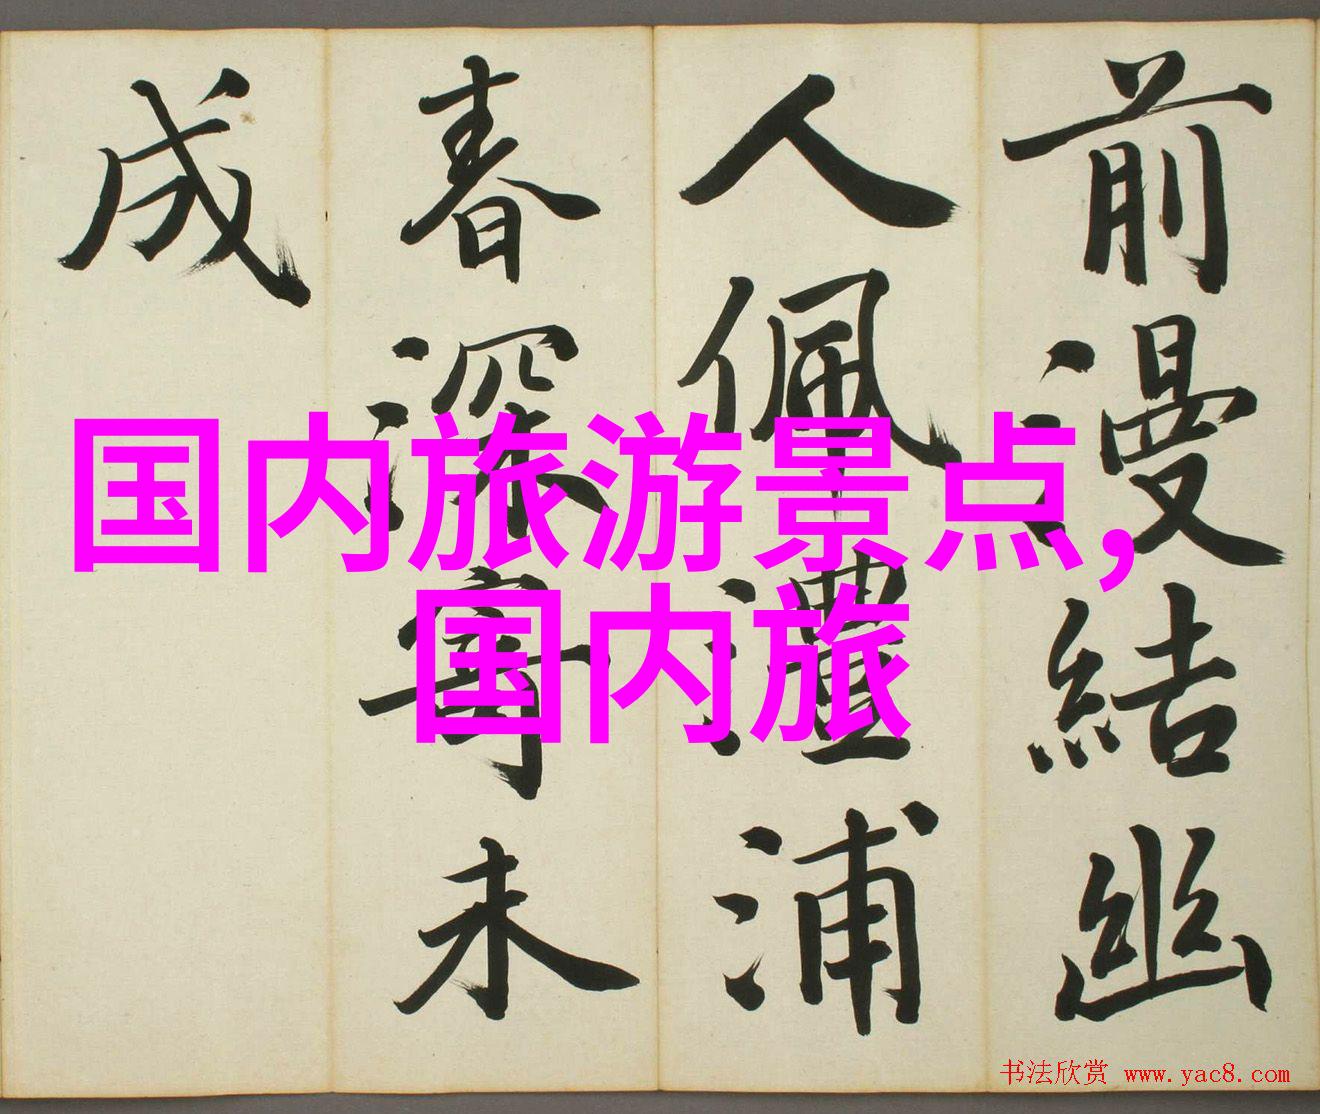 前漫結幽
人佩澧浦
春深寄未
成
国内旅游景点,
国内旅
书法欣赏 www.yac8.com